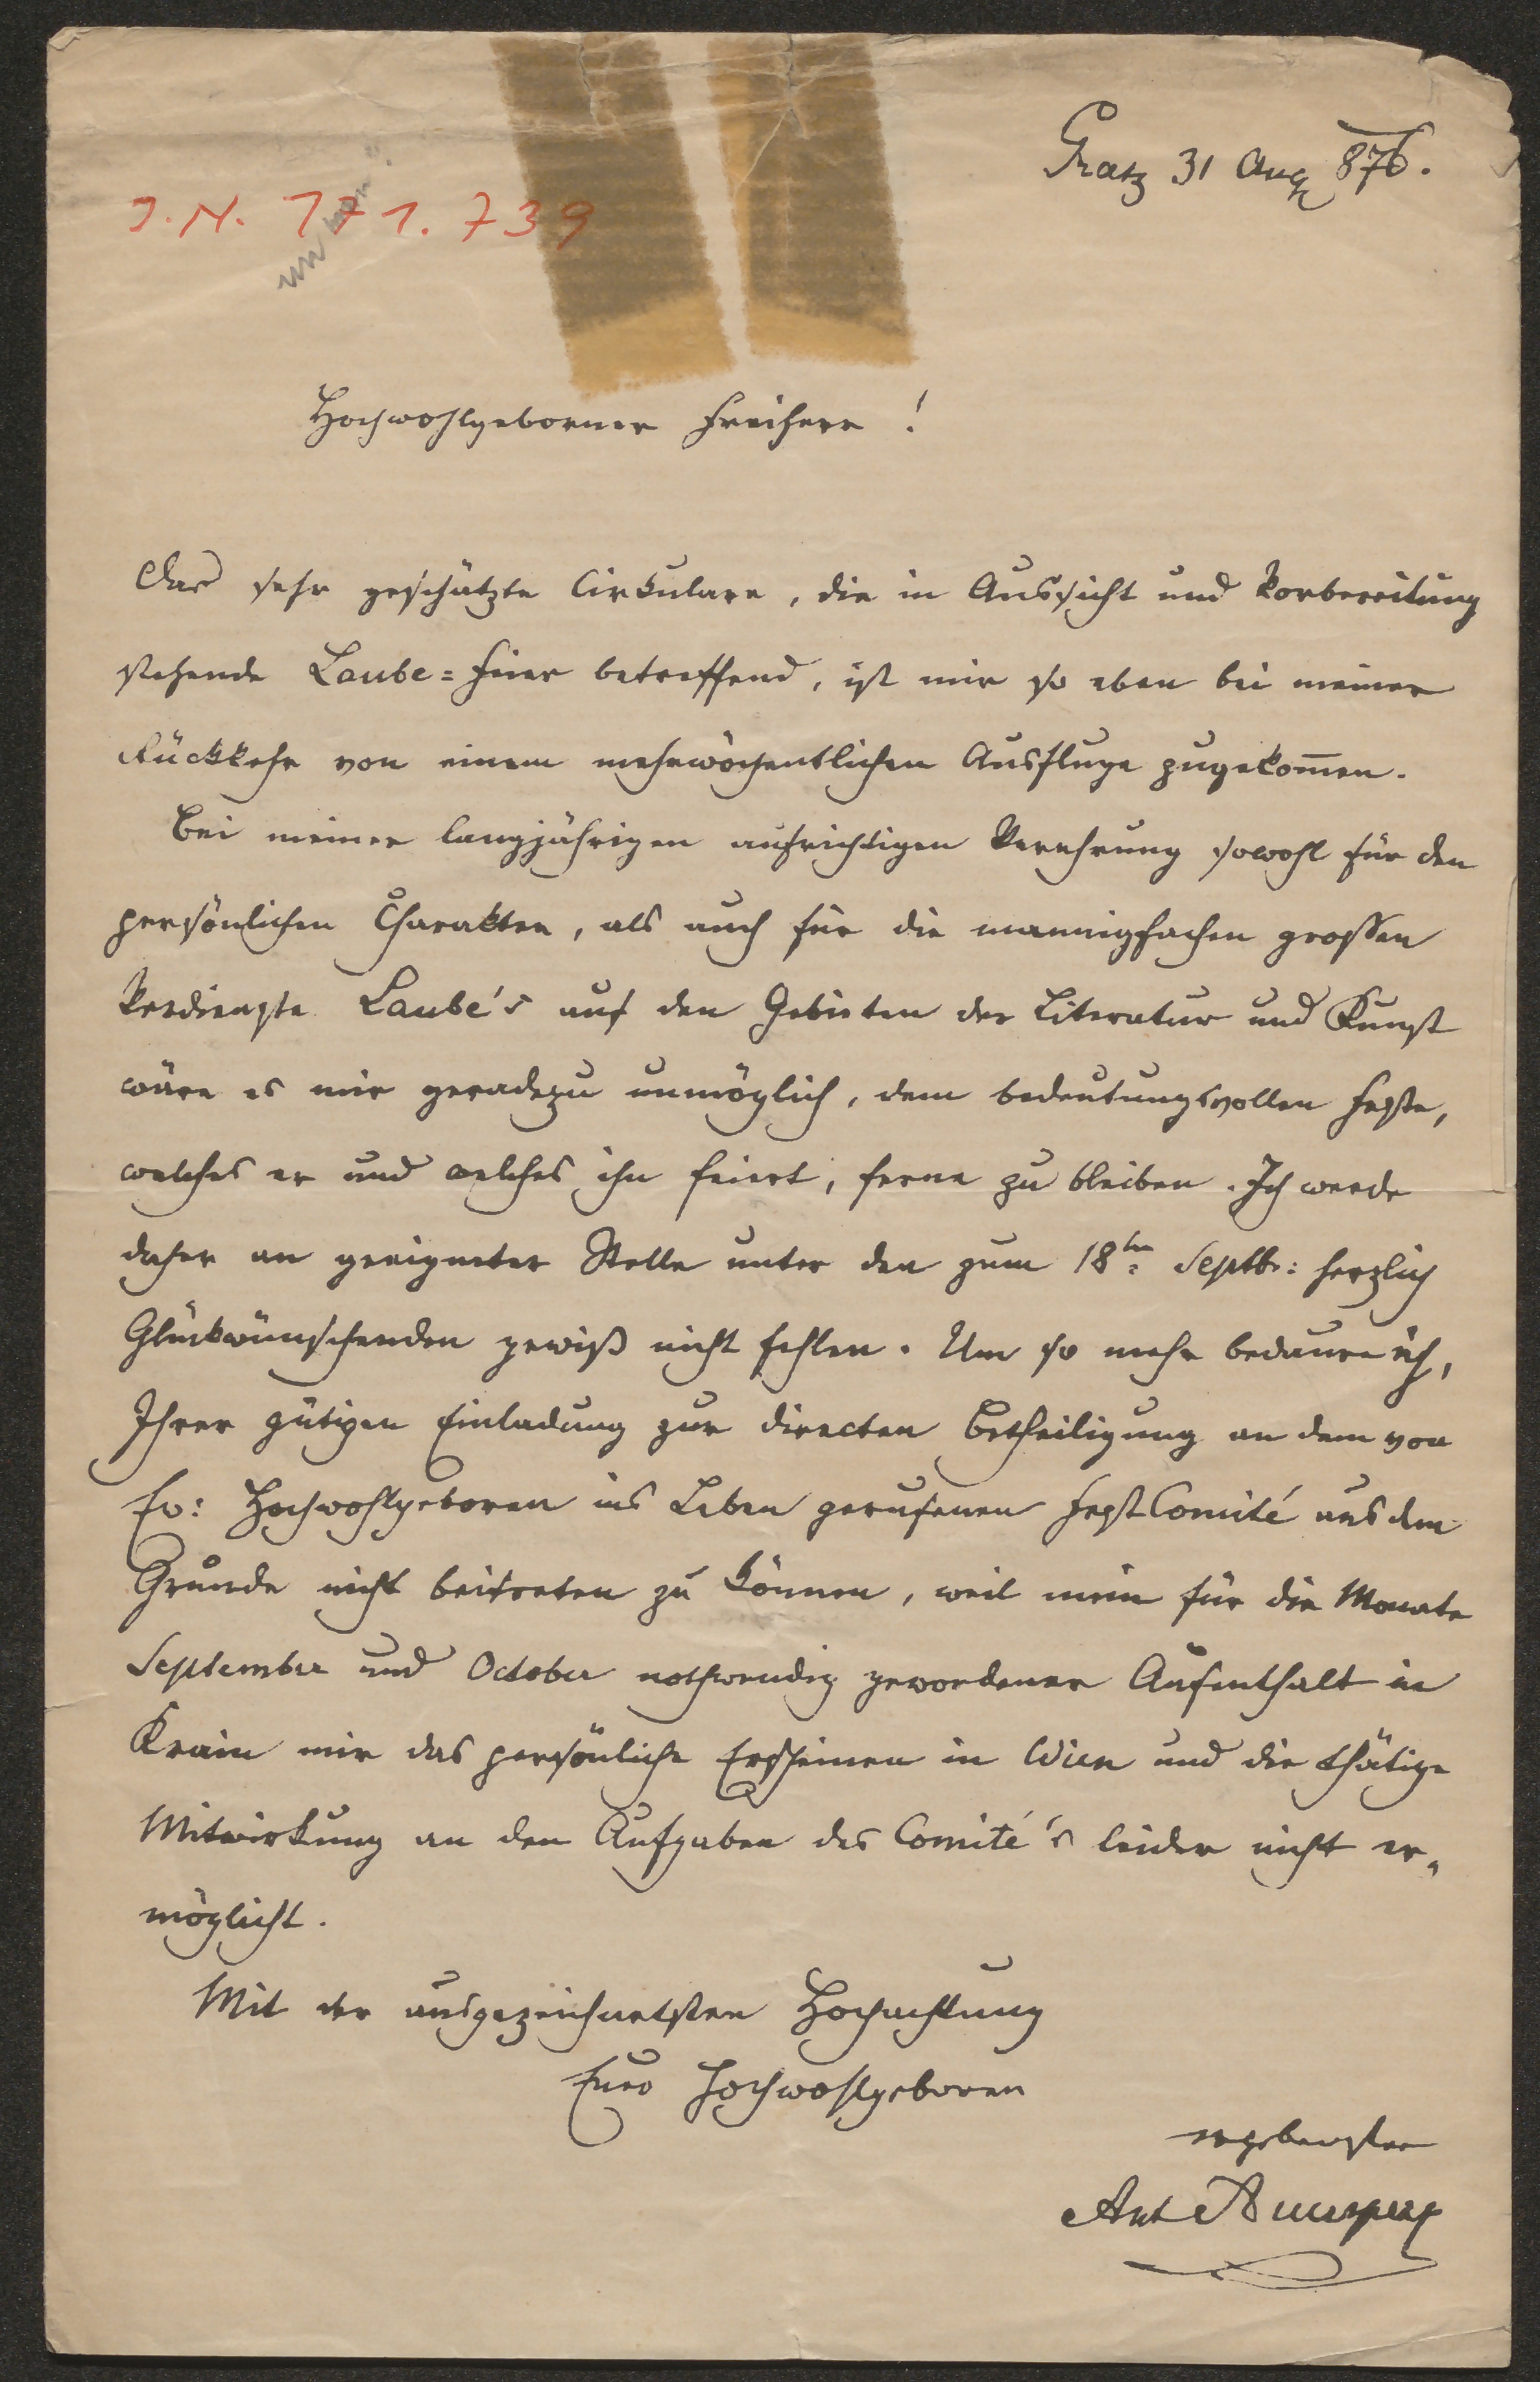 Gratz 31 Aug 876.
J.N. 171.739
Hochwohlgeborner Freiherr!
Das sehr geschätzte Cirkulare, die in Aussicht und Vorbereitung
stehende Laube=Feier betreffend, ist mir so eben bei meiner
Rückkehr von einem mehrwöchentlichen Ausfluge zugekom̅en.
Bei meiner langjährigen aufrichtigen Verehrung sowohl für den
persönlichen Charakter, als auch für die mannigfachen grossen
Verdienste Laube's auf den Gebieten der Literatur und Kunst
wäre es mir geradezu unmöglich, dem bedeutungsvollen Feste,
welches er und welches ihn feiert, ferne zu bleiben. Ich werde
daher an geeigneter Stelle unter den zum 18ten Septbr: herzlich
Glückwünschenden gewiß nicht fehlen. Um so mehr bedaure ich,
Ihrer gütigen Einladung zur directen Betheiligung an dem von
Ew: Hochwohlgeboren ins Leben gerufenen Fest Comité aus dem
Grunde nicht beitreten zu können, weil mein für die Monate
September und October nothwendig gewordener Aufenthalt in
Krain mir das persönliche Erscheinen in Wien und die thätige
Mitwirkung an den Aufgaben des Comité's leider nicht er-
möglicht.
Mit der ausgezeichnetsten Hochachtung
Euer Hochwohlgeboren
ergebenster
Ant Auersperg